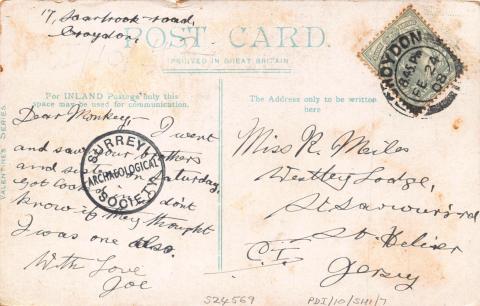 17, Saarbrook road,
Croydon.
POST CARD.
PRINTED IN GREAT BRITAIN
CROYDON
8.45 PM
FE 24
08
For INLAND Postage only this
space may be used for communication.
The Address only to be written
here
VALENTINE'S SERIES
Dear Monkey, I went
and saw your brothers
and sister on Saturday,
Got look don't
know if they thought
I was one also.
With Love
Joe
SURREY
ARCHAEOLOGICAL
SOCIETY
Miss R. Meiles
Westley Lodge,
St Saviour's rd
St. Helier
C.I. Jersey
S24569
PDI/10/SHI/7